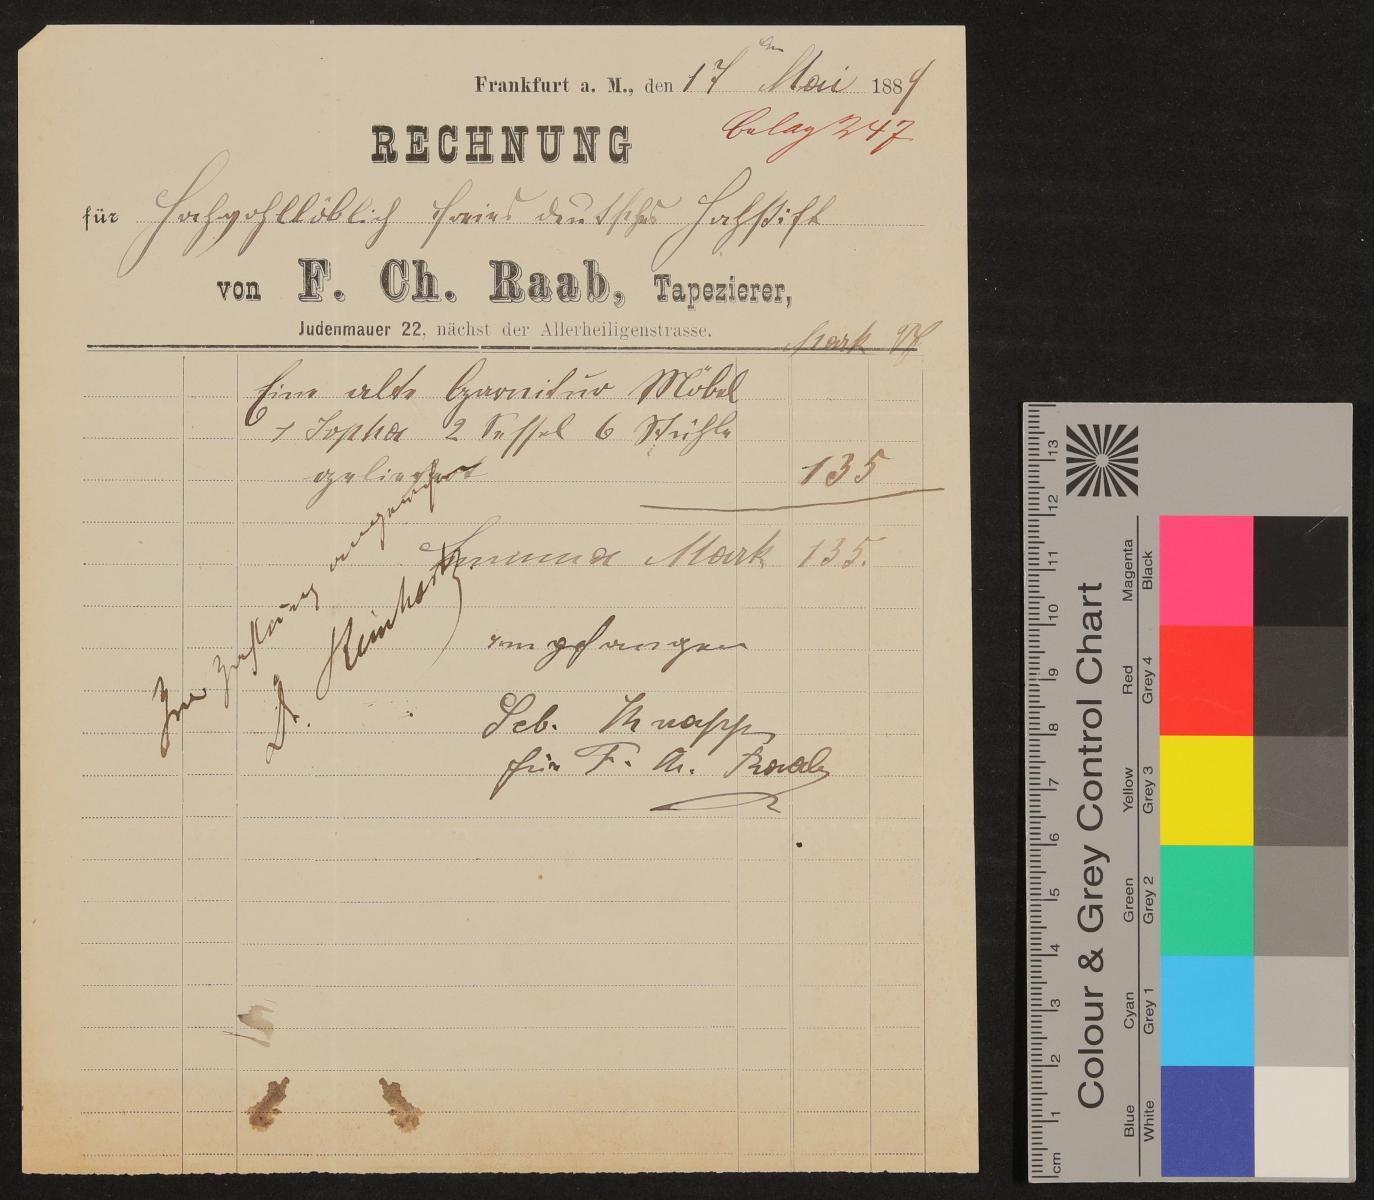 Frankfurt a. M., den 17 ten Mai 1884
Belag 247
RECHNUNG
für Hochwohllöblich freies deutsches Hochstift
von F. Ch. Raab, Tapezierer,
Judenmauer 22, nächst der Allerheiligenstrasse.
Mark Pf
Eine alte Garnitur Möbel
1 Sopha 2 Sessel 6 Stühle
geliefert 135
Summa Mark 135.
Zur Zahlung angewiesen
Dr. Reinhardt
empfangen
Seb. Knapp
für F. Ch. Raab
Colour & Grey Control Chart
Blue Cyan Green Yellow Red Magenta
White Grey 1 Grey 2 Grey 3 Grey 4 Black
cm 1 2 3 4 5 6 7 8 9 10 11 12 13